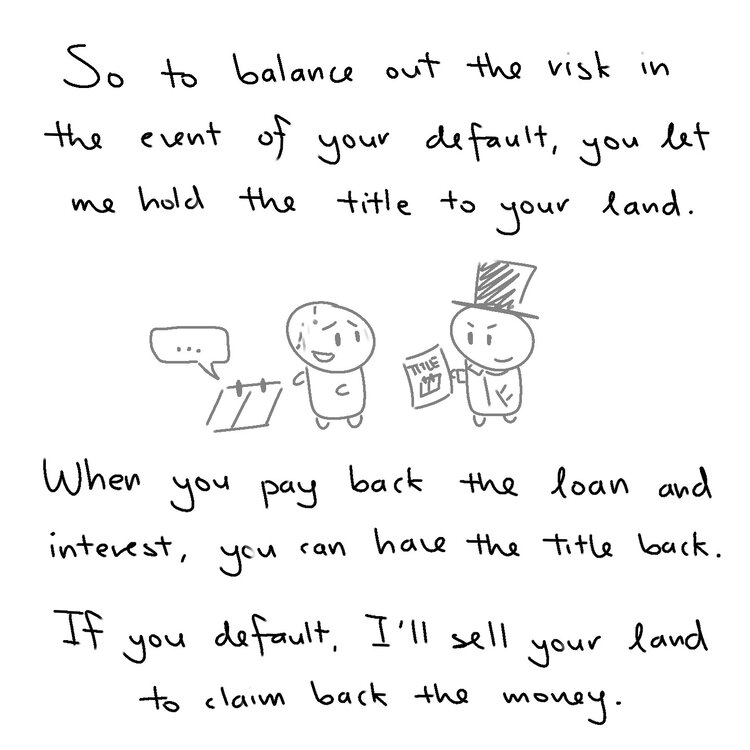 So to balance out the risk in
the event of your default, you let
me hold the title to your land.
...
TITLE
When you pay back the loan and
interest, you can have the title back.
If you default, I'll sell your land
to claim back the money.